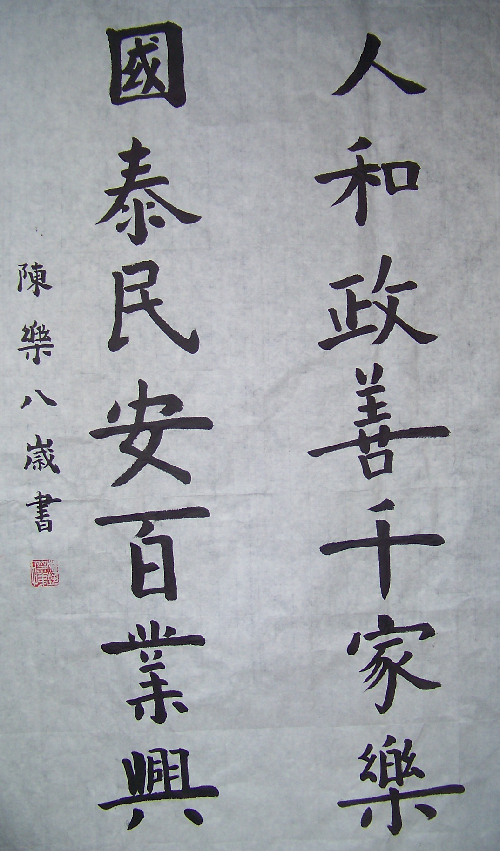 人和政善千家樂
國泰民安百業興
陳樂八歲書